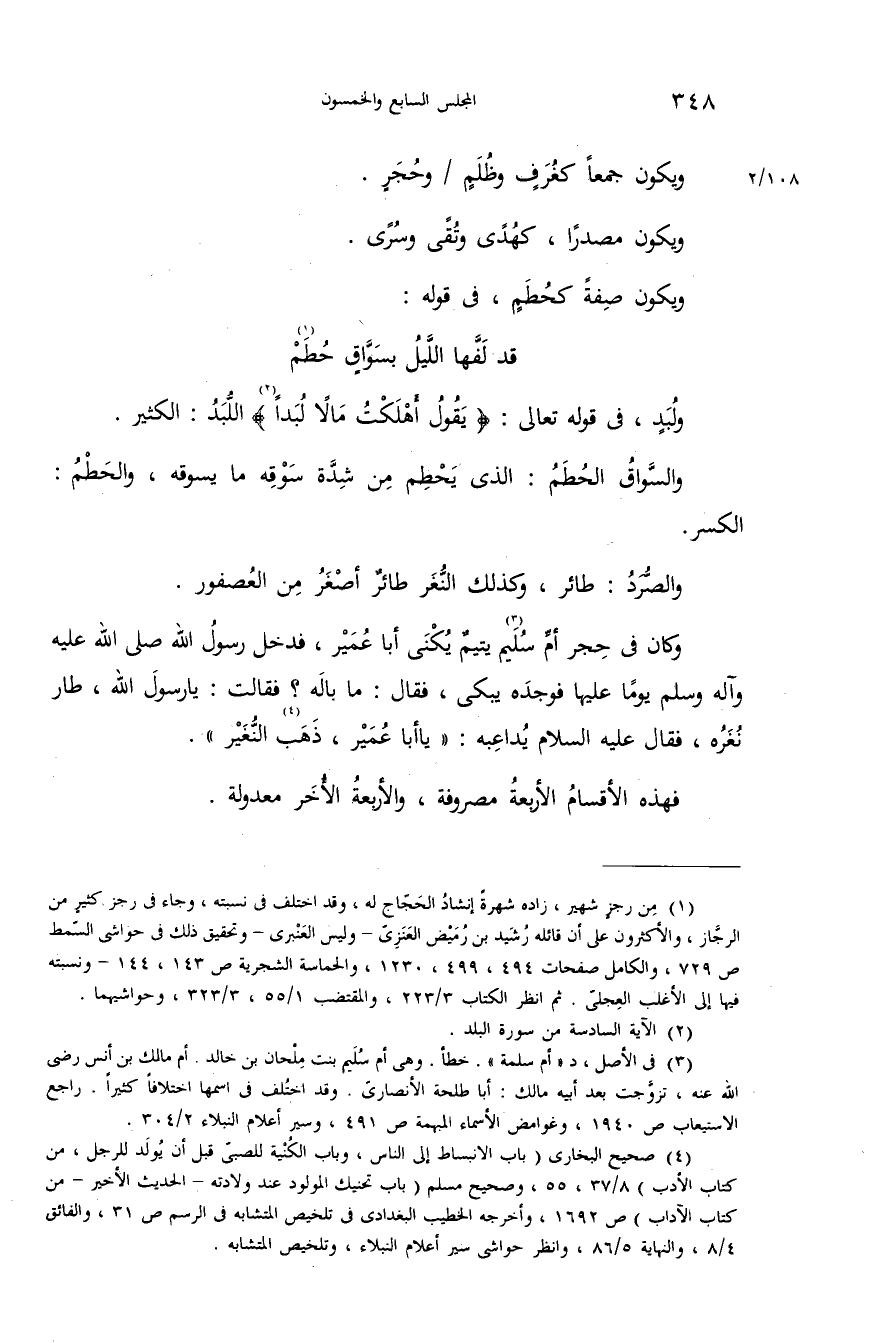 ٣٤٨ المجلس السابع والخمسون
٢/١٠٨ ويكون جمعاً كغُرَفٍ وظُلَمٍ / وحُجَرٍ .
ويكون مصدرًا ، كهُدًى وتُقًى وسُرًى .
ويكون صِفةً كحُطَمٍ ، فى قوله :
قد لَفَّها اللَّيلُ بسَوَّاقٍ حُطَمْ(١)
ولُبَدٍ ، فى قوله تعالى : ﴿ يَقُولُ أَهْلَكْتُ مَالًا لُبَداً ﴾(٢) اللُّبَدُ : الكثير .
والسَّواقُ الحُطَمُ : الذى يَحْطِم مِن شِدَّة سَوْقِه ما يسوقه ، والحَطْمُ :
الكسر .
والصُّرَدُ : طائر ، وكذلك النُّغَر طائرٌ أصْغَرُ مِن العُصفور .
وكان فى حِجر أمِّ سُلَيم(٣) يتيمٌ يُكْنَى أبا عُمَيْر ، فدخل رسولُ الله صلى الله عليه
وآله وسلم يومًا عليها فوجدَه يبكى ، فقال : ما بالَه ؟ فقالت : يارسولَ الله ، طار
نُغَرُه ، فقال عليه السلام يُداعِبه : « ياأبا عُمَيْر ، ذَهَب النُّغَيْر »(٤) .
فهذه الأقسامُ الأربعةُ مصروفة ، والأربعةُ الأُخَر معدولة .
(١) مِن رجزٍ شهير ، زاده شهرةً إنشادُ الحَجّاج له ، وقد اختلف فى نسبته ، وجاء فى رجز كثيرٍ من
الرجَّاز ، والأكثرون على أن قائله رُشَيد بن رُمَيْض العَنَزِىّ – وليس العَنْبرى – وتحقيق ذلك فى حواشى السِّمط
ص ٧٢٩ ، والكامل صفحات ٤٩٤ ، ٤٩٩ ، ١٢٣٠ ، والحماسة الشجرية ص ١٤٣ ، ١٤٤ – ونسبته
فيها إلى الأغلب العِجلىّ . ثم انظر الكتاب ٢٢٣/٣ ، والمقتضب ٥٥/١ ، ٣٢٣/٣ ، وحواشيهما .
(٢) الآية السادسة من سورة البلد .
(٣) فى الأصل ، د « أم سلمة » . خطأ . وهى أم سُلَيم بنت مِلْحان بن خالد . أم مالك بن أنس رضى
الله عنه ، تزوَّجت بعد أبيه مالك : أبا طلحة الأنصارىّ . وقد اختُلف فى اسمها اختلافاً كثيراً . راجع
الاستيعاب ص ١٩٤٠ ، وغوامض الأسماء المبهمة ص ٤٩١ ، وسير أعلام النبلاء ٣٠٤/٢ .
(٤) صحيح البخارى ( باب الانبساط إلى الناس ، وباب الكُنْية للصبىّ قبل أن يُولَد للرجل ، من
كتاب الأدب ) ٣٧/٨ ، ٥٥ ، وصحيح مسلم ( باب تحنيك المولود عند ولادته – الحديث الأخير – من
كتاب الآداب ) ص ١٦٩٢ ، وأخرجه الخطيب البغدادى فى تلخيص المتشابه فى الرسم ص ٣١ ، والفائق
٨/٤ ، والنهاية ٨٦/٥ ، وانظر حواشى سير أعلام النبلاء ، وتلخيص المتشابه .